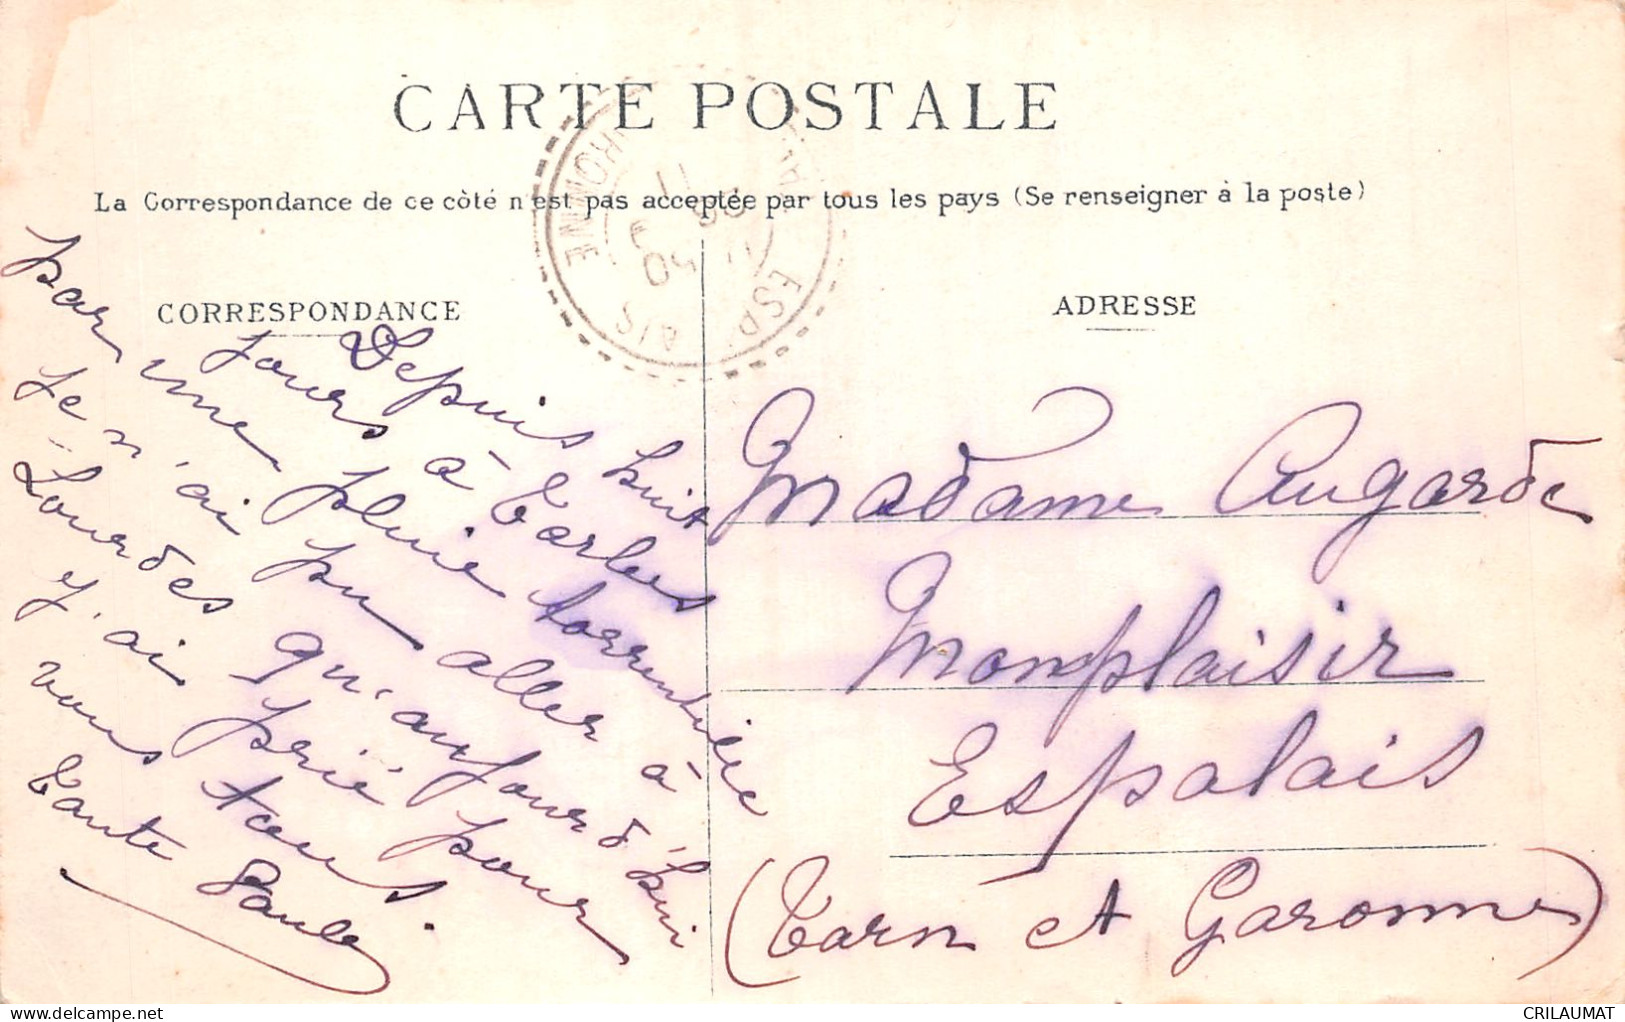 CARTE POSTALE
La Correspondance de ce côté n'est pas acceptée par tous les pays (Se renseigner à la poste)
CORRESPONDANCE
Depuis huit
jours à Tarbes
par une pluie torrentielle
je n'ai pu aller à
Lourdes qu'aujourd'hui
j'ai prié pour
vous tous.
Tante Paule
ADRESSE
Madame Augarde
Monplaisir
Espalais
(Tarn et Garonne)
delcampe.net
CRILAUMAT